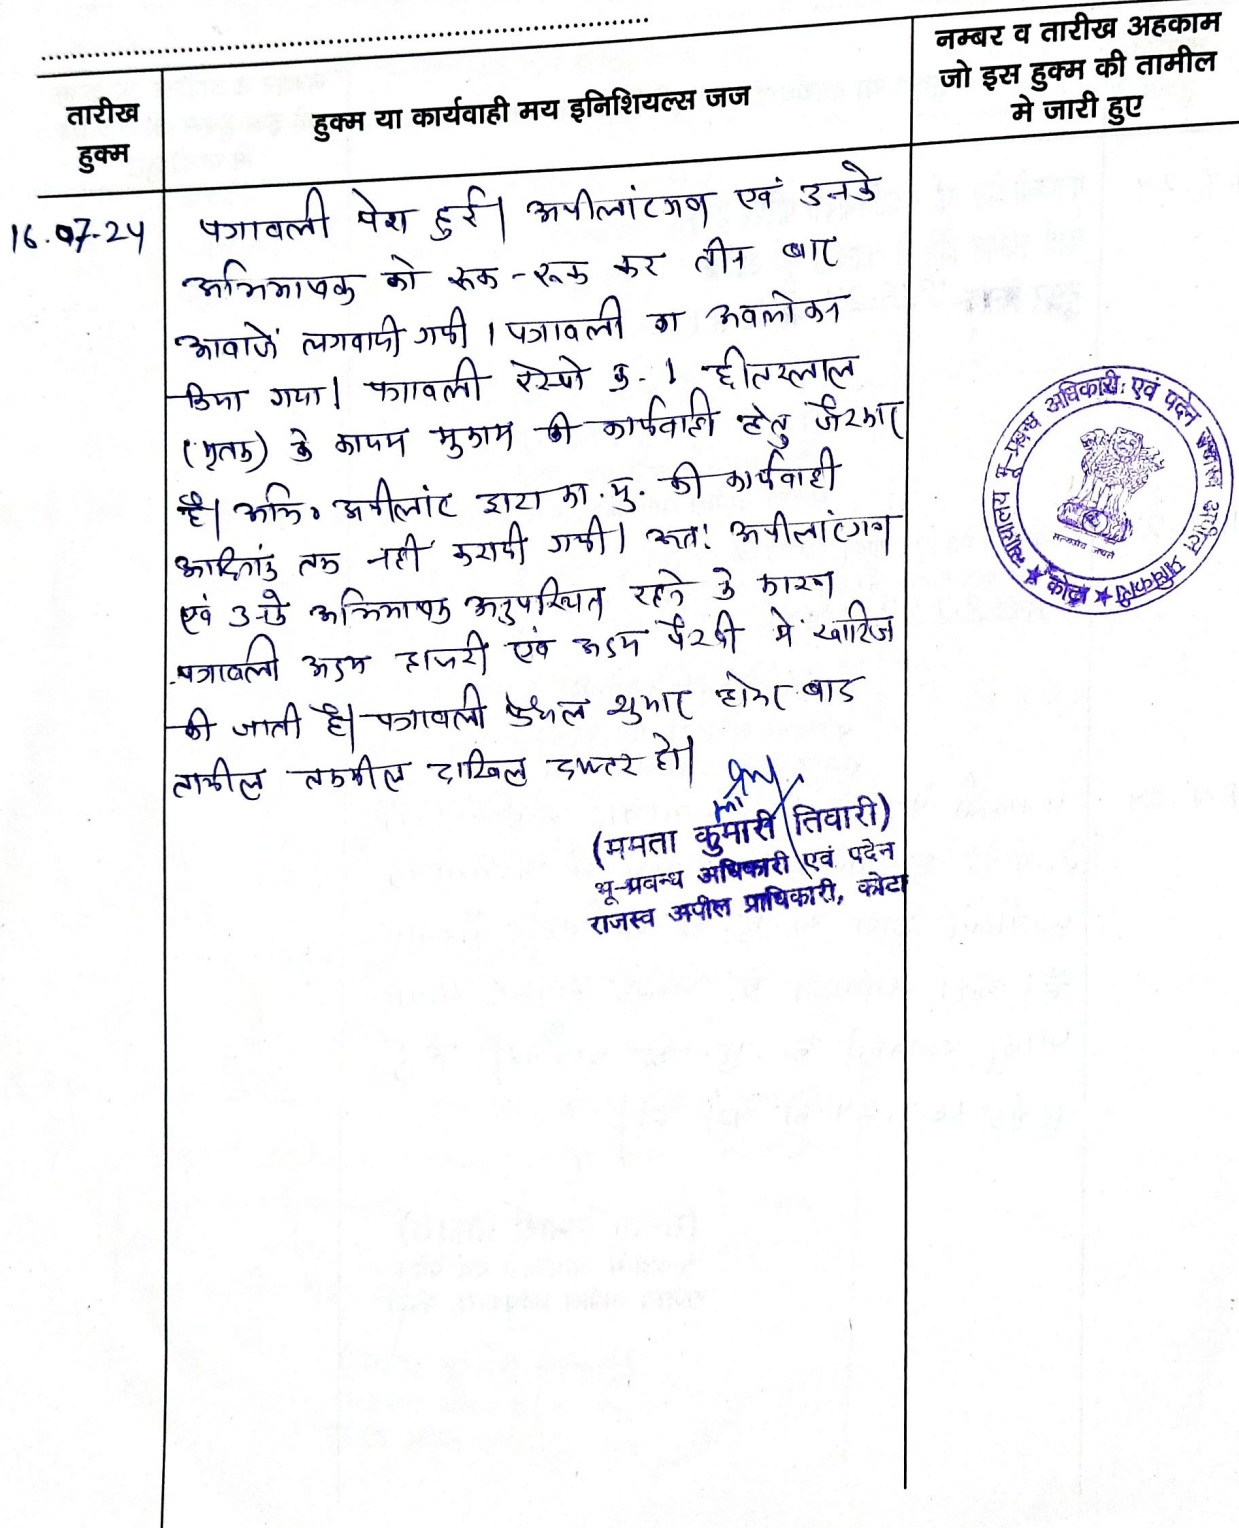 नम्बर व तारीख अहकाम
जो इस हुक्म की तामील
मे जारी हुए
तारीख
हुक्म
हुक्म या कार्यवाही मय इनिशियल्स जज
16.07.24
पत्रावली पेश हुई। अपीलांटगण एवं उनके
अभिभाषक को रूक-रूक कर तीन बार
आवाजें लगवायी गयी। पत्रावली का अवलोकन
किया गया। पत्रावली रेस्पो क्र. 1 छीतरलाल
(मृतक) के कायम मुकाम की कार्यवाही हेतु
है। अभि० अपीलांट द्वारा का.मु. की कार्यवाही
आदिनांक तक नही करायी गयी। अतः अपीलांटगण
एवं उनके अभिभाषक अनुपस्थित रहने के कारण
पत्रावली अदम हाजरी एवं अदम पैरवी में खारिज
की जाती है। पत्रावली फैसल शुमार होकर बाद
तामील तकमील दाखिल दफ्तर हो।
(ममता कुमारी तिवारी)
भू-प्रबन्ध अधिकारी एवं पदेन
राजस्व अपील प्राधिकारी, कोटा
न्यायालय भू-प्रबन्ध अधिकारी एवं पदेन राजस्व अपील प्राधिकारी ★ कोटा ★
सत्यमेव जयते